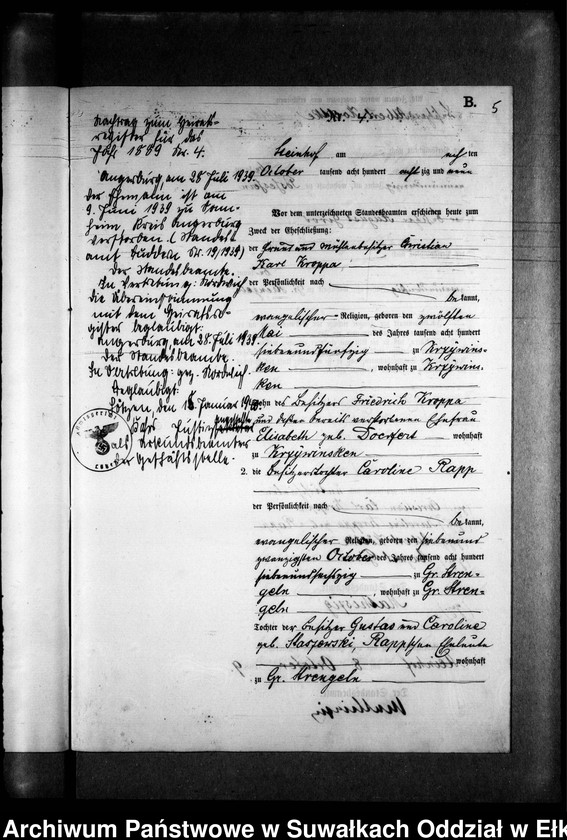 B.
5
Nachtrag zum Heirats-
register für das
Jahr 1889 Nr. 4.
Angerburg am 28 Juli 1939.
der Ehemann ist am
9. Juni 1939 zu Sonn-
heim, Kreis Angerburg
verstorben. (Standes-
amt Buddern Nr. 19/1939)
Der Standesbeamte.
In Vertretung: Nordwich
die Übereinstimmung
mit dem Heiratsre-
gister beglaubigt.
Angerburg, am 28 Juli 1939
der Standesbeamte.
In Vertretung: gez. Nordwich
Beglaubigt:
Lötzen, den 18. Januar
Justizangestellte
als Urkundsbeamter
der Geschäftsstelle.
Steinhof am ten
October tausend acht hundert achtzig und neun
Vor dem unterzeichneten Standesbeamten erschienen heute zum
Zweck der Eheschließung:
der Grund und Mühlenbesitzer Christian
Karl Kroppa
der Persönlichkeit nach
bekannt,
evangelischer Religion, geboren den zwölften
Mai des Jahres tausend acht hundert
siebenundfünfzig zu Krzywins-
ken, wohnhaft zu Krzywins-
ken
Sohn des Besitzers Friedrich Kroppa
und dessen bereits verstorbenen Ehefrau
Elisabeth geb. Doerfert wohnhaft
zu Krzywinsken
2. die Besitzerstochter Caroline Rapp
der Persönlichkeit nach
bekannt,
evangelischer Religion, geboren den siebenund
zwanzigsten October des Jahres tausend acht hundert
siebenundsechszig zu Gr. Stren-
geln, wohnhaft zu Gr. Stren-
geln
Tochter der Besitzer Gustav und Caroline
geb. Staszewski, Rappschen Eheleute
wohnhaft
zu Gr. Strengeln
Archiwum Państwowe w Suwałkach Oddział w Ełk